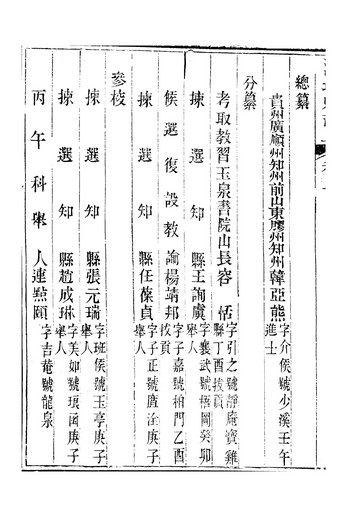 總纂
貴州廣順州知州前山東膠州知州韓亞熊字介侯號少溪壬午
進士
分纂
考取教習玉泉書院山長容恬字引之號靜庵寶雞
縣丁酉拔貢
揀選知縣王詢虞字襄武號梧岡癸卯
舉人
候選復設教諭楊靖邦字子嘉號柏門乙酉
拔貢
揀選知縣任葆貞字子正號廣淦庚子
舉人
參校
揀選知縣張元瑞字班侯號玉亭庚子
舉人
揀選知縣趙成琳字美如號琅函庚子
舉人
丙午科舉人連點頤字吉菴號龍泉